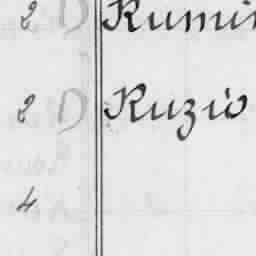 2 D Rumin
2 D Ruzio
4